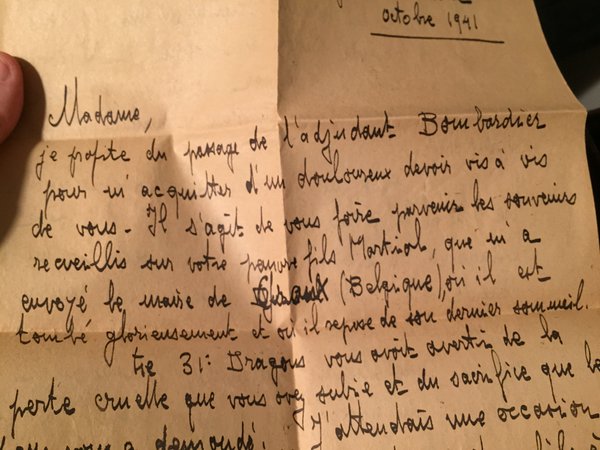 octobre 1941
Madame,
je profite du passage de l'adjudant Bombardier
pour m'acquitter d'un douloureux devoir vis à vis
de vous - Il s'agit de vous faire parvenir les souvenirs
recueillis sur votre pauvre fils Martial, que m'a
envoyé le maire de (Belgique), où il est
tombé glorieusement et où il repose de son dernier sommeil.
Le 31e Dragons vous avait averti de la
perte cruelle que vous avez subie et du sacrifice que la
J'attendais une occasion
a demandé.